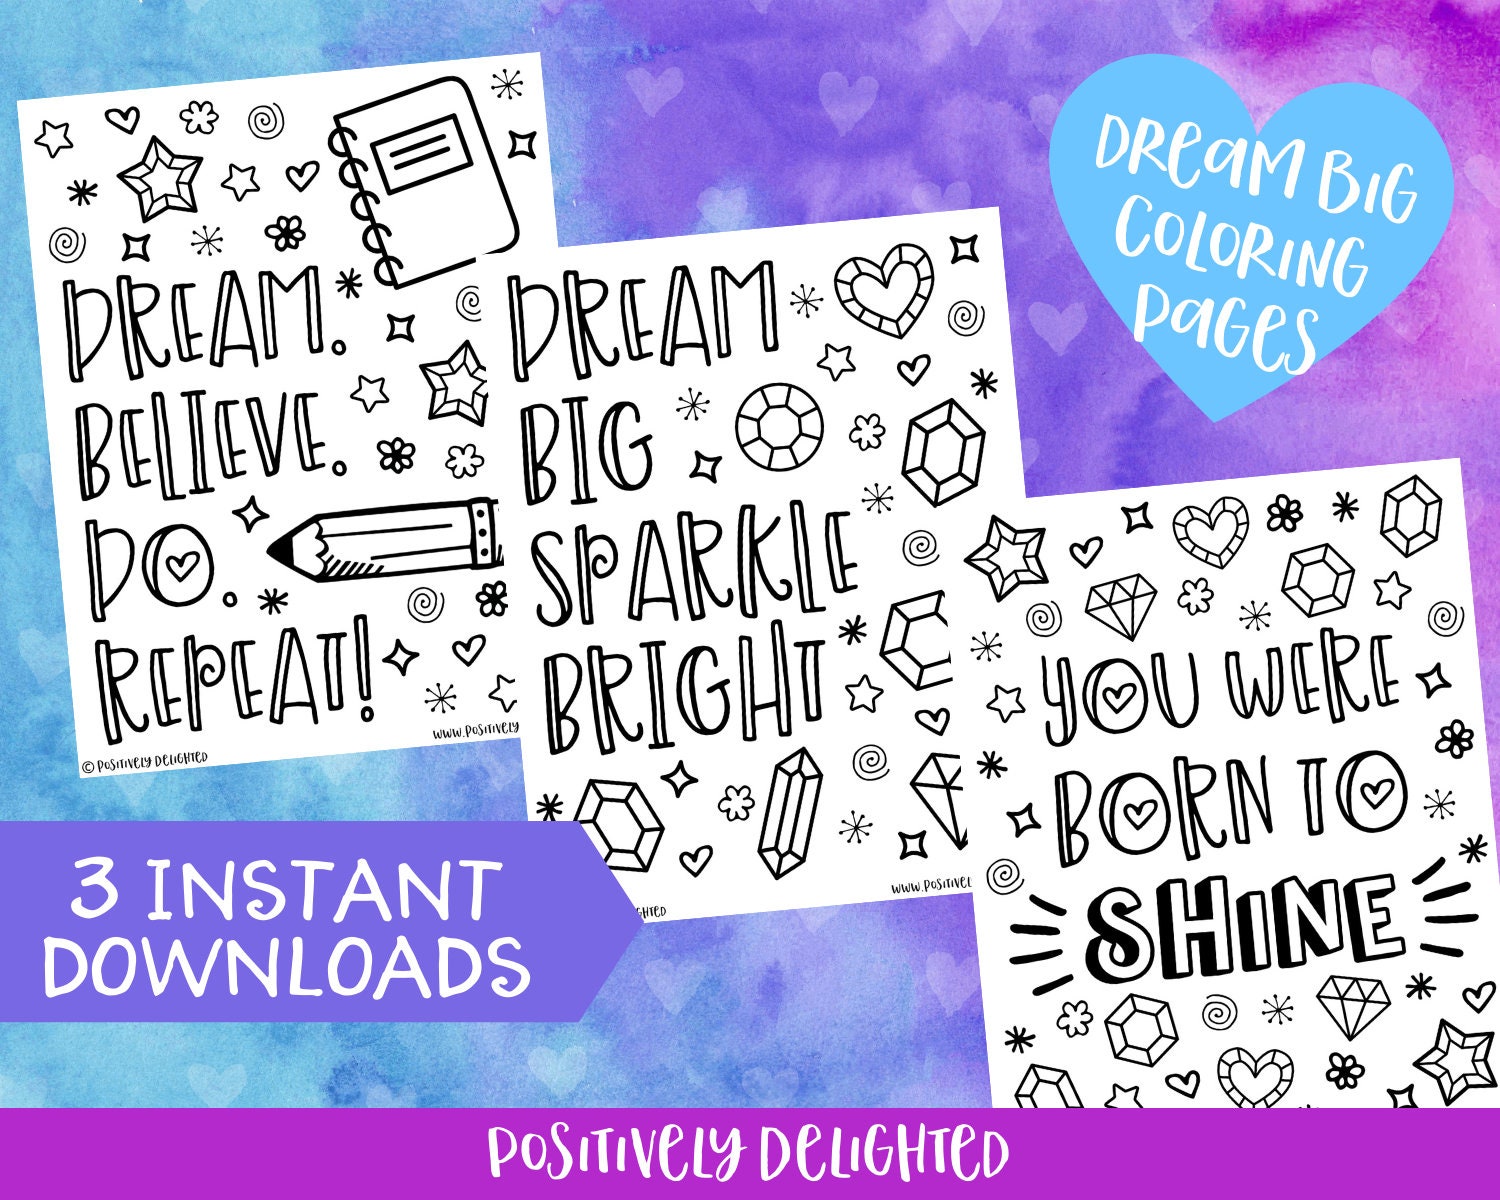 DREAM BIG
COLORING
PAGES
DREAM.
BELIEVE.
DO.
REPEAT!
© POSITIVELY DELIGHTED
WWW.POSITIVELY
DREAM
BIG
SPARKLE
BRIGHT
WWW.POSITIVEL
YOU WERE
BORN TO
SHINE
3 INSTANT
DOWNLOADS
POSITIVELY DELIGHTED